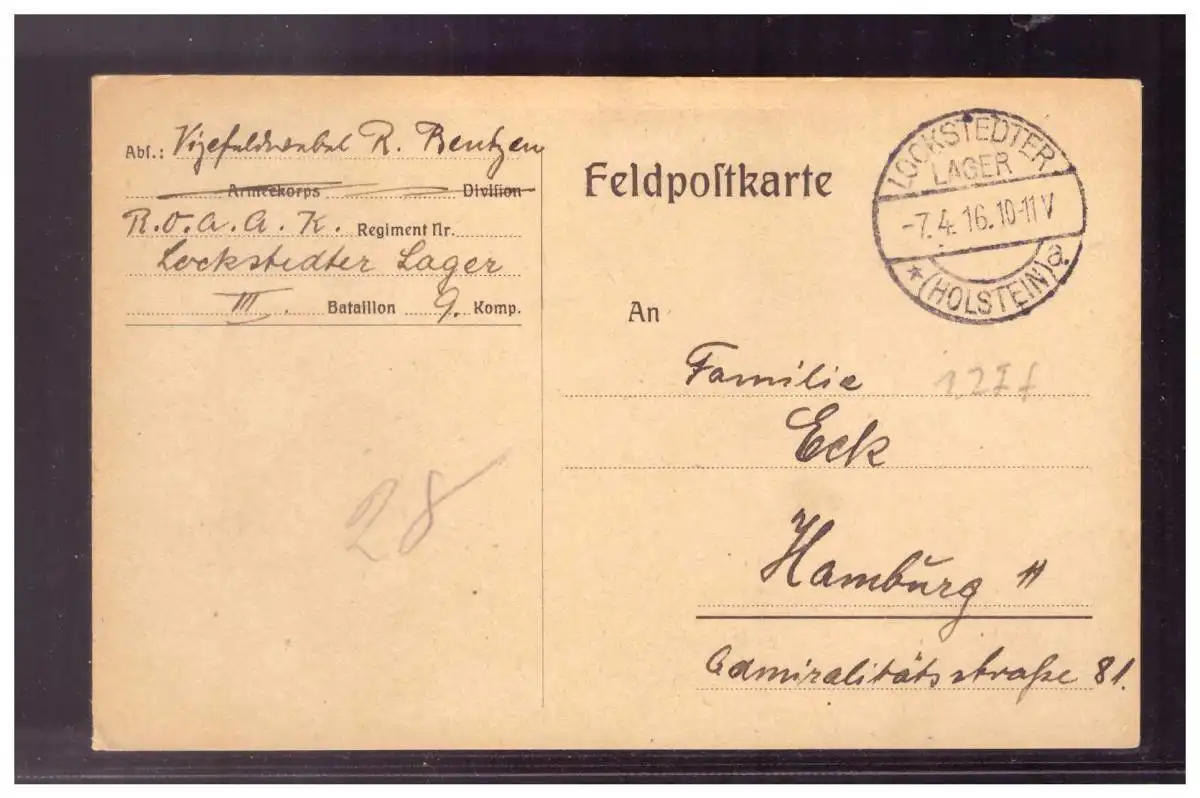 Abs.: Vizefeldwebel R. Bentzen
Armeekorps Division
R.O.A.A.K. Regiment Nr.
Lockstedter Lager
III. Bataillon 9. Komp.
Feldpostkarte
LOCKSTEDTER
LAGER
-7.4.16.10-11V
* (HOLSTEIN) a.
An
Familie
Eck
Hamburg 11
Admiralitätsstraße 81.
28